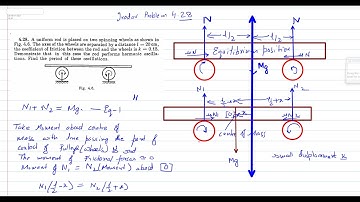 Irodov Problem 4.28
4.28. A uniform rod is placed on two spinning wheels as shown in
Fig. 4.6. The axes of the wheels are separated by a distance l = 20 cm,
the coefficient of friction between the rod and the wheels is k = 0.18.
Demonstrate that in this case the rod performs harmonic oscillations.
Find the period of these oscillations.
Fig. 4.6.
N N
l/2 l/2
Equilibrium position
μN μN
Mg
N1 + N2 = Mg. — Eq-1
Take Moment about centre of
mass with
passing the point of
contact of
The moment of Frictional forces = 0
Moment of N1 = N2 (Moment) about [O]
N1(l/2 - x) = N2(l/2 + x)
N2
l/2 - x l/2 + x
[O]
centre of Mass
Mg
small displacement is